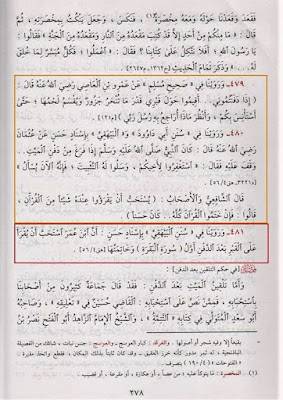 فَقَعَدَ وَقَعَدْنَا حَوْلَهُ وَمَعَهُ مِخْصَرَةٌ(١)، فَنَكَسَ، وَجَعَلَ يَنْكُتُ بِمِخْصَرَتِهِ، ثُمَّ قَالَ:
«مَا مِنْكُمْ مِنْ أَحَدٍ إِلَّا قَدْ كُتِبَ مَقْعَدُهُ مِنَ النَّارِ وَمَقْعَدُهُ مِنَ الْجَنَّةِ» فَقَالُوا:
يَا رَسُولَ اللهِ، أَفَلَا نَتَّكِلُ عَلَى كِتَابِنَا؟ فَقَالَ: «اعْمَلُوا؛ فَكُلٌّ مُيَسَّرٌ لِمَا خُلِقَ
لَهُ» وَذَكَرَ تَمَامَ الْحَدِيثِ [خ١٣٦٢، م٢٦٤٧].
٤٧٩ـ وَرَوَيْنَا فِي «صَحِيحِ مُسْلِمٍ» عَنْ عَمْرِو بْنِ الْعَاصِي رَضِيَ اللهُ عَنْهُ قَالَ:
(إِذَا دَفَنْتُمُونِي.. أَقِيمُوا حَوْلَ قَبْرِي قَدْرَ مَا تُنْحَرُ جَزُورٌ وَيُقْسَمُ لَحْمُهَا؛ حَتَّى
أَسْتَأْنِسَ بِكُمْ، وَأَنْظُرَ مَاذَا أُرَاجِعُ بِهِ رُسُلَ رَبِّي) [١٢١].
٤٨٠ـ وَرَوَيْنَا فِي «سُنَنِ أَبِي دَاوُودَ» وَ«الْبَيْهَقِيِّ» بِإِسْنَادٍ حَسَنٍ عَنْ عُثْمَانَ
رَضِيَ اللهُ عَنْهُ قَالَ: كَانَ النَّبِيُّ صَلَّى اللهُ عَلَيْهِ وَسَلَّمَ إِذَا فَرَغَ مِنْ دَفْنِ الْمَيِّتِ..
وَقَفَ عَلَيْهِ فَقَالَ: «اسْتَغْفِرُوا لِأَخِيكُمْ، وَسَلُوا لَهُ التَّثْبِيتَ؛ فَإِنَّهُ الْآنَ يُسْأَلُ»
[د٣٢٢١، هق٥٦/٤].
قَالَ الشَّافِعِيُّ وَالْأَصْحَابُ: (يُسْتَحَبُّ أَنْ يَقْرَؤُوا عِنْدَهُ شَيْئاً مِنَ الْقُرْآنِ،
قَالُوا: فَإِنْ خَتَمُوا الْقُرْآنَ كُلَّهُ.. كَانَ حَسَناً)
٤٨١ـ وَرَوَيْنَا فِي «سُنَنِ الْبَيْهَقِيِّ» بِإِسْنَادٍ حَسَنٍ: أَنَّ ابْنَ عُمَرَ اسْتَحَبَّ أَنْ يُقْرَأَ
عَلَى الْقَبْرِ بَعْدَ الدَّفْنِ أَوَّلُ (سُورَةِ الْبَقَرَةِ) وَخَاتِمَتُهَا [هق٥٦/٤].
[فِي حُكْمِ التَّلْقِينِ بَعْدَ الدَّفْنِ]:
وَأَمَّا تَلْقِينُ الْمَيِّتِ بَعْدَ الدَّفْنِ: فَقَدْ قَالَ جَمَاعَةٌ كَثِيرُونَ مِنْ أَصْحَابِنَا
بِاسْتِحْبَابِهِ، فَمِمَّنْ نَصَّ عَلَى اسْتِحْبَابِهِ: الْقَاضِي حُسَيْنٌ فِي «تَعْلِيقِهِ»، وَصَاحِبُهُ
أَبُو سَعْدٍ الْمُتَوَلِّي فِي كِتَابِهِ «التَّتِمَّةُ»، وَالشَّيْخُ الْإِمَامُ الزَّاهِدُ أَبُو الْفَتْحِ نَصْرُ بْنُ
(١) المخصرة: ما يتوكأ عليه؛ من عصا أو عكازة، أو مقرعة، أو قضيب.
٢٧٨